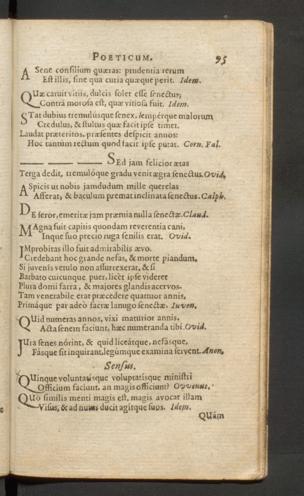 POETICUM. 95
A Sene consilium quæras: prudentia rerum
Est illis, sine qua curia quæque perit. Idem.
Quæ caruit vitiis, dulcis solet esse senectus,
Contrà morosa est, quæ vitiosa fuit. Idem.
STat dubius tremulúsque senex, semperque malorum
Credulus, & stultus quæ facit ipse timet.
Laudat præteritos, præsentes despicit annos:
Hoc tantùm rectum quod facit ipse putat. Corn. Gal.
SEd jam felicior ætas
Terga dedit, tremulóque gradu venit ægra senectus. Ovid.
ASpicis ut nobis jamdudum mille querelas
Afferat, & baculum premat inclinata senectus. Calph.
DE sero, emeritæ jam præmia nulla senectæ. Claud.
MAgna fuit capitis quondam reverentia cani,
Inque suo precio ruga senilis erat. Ovid.
IMprobitas illo fuit admirabilis ævo.
Credebant hoc grande nefas, & morte piandum,
Si juvenis vetulo non assurrexerat, & si
Barbato cuicunque puer, licèt ipse videret
Plura domi farra, & majores glandis acervos.
Tam venerabile erat præcedere quatuor annis,
Primáque par adeò sacræ lanugo senectæ. Juven.
QUid numeras annos, vixi maturior annis,
Acta senem faciunt, hæc numeranda tibi. Ovid.
JUra senes nôrint, & quid liceátque, nefásque,
Fásque sit inquirant, legúmque examina servent. Anon.
Sensus.
QUinque voluntatisque voluptatisque ministri
Officium faciunt, an magis officiunt? Ovvenus.
QUò similis menti magis est, magis avocat illam
Visus, & ad nutus ducit agitque suos. Idem.
Quàm